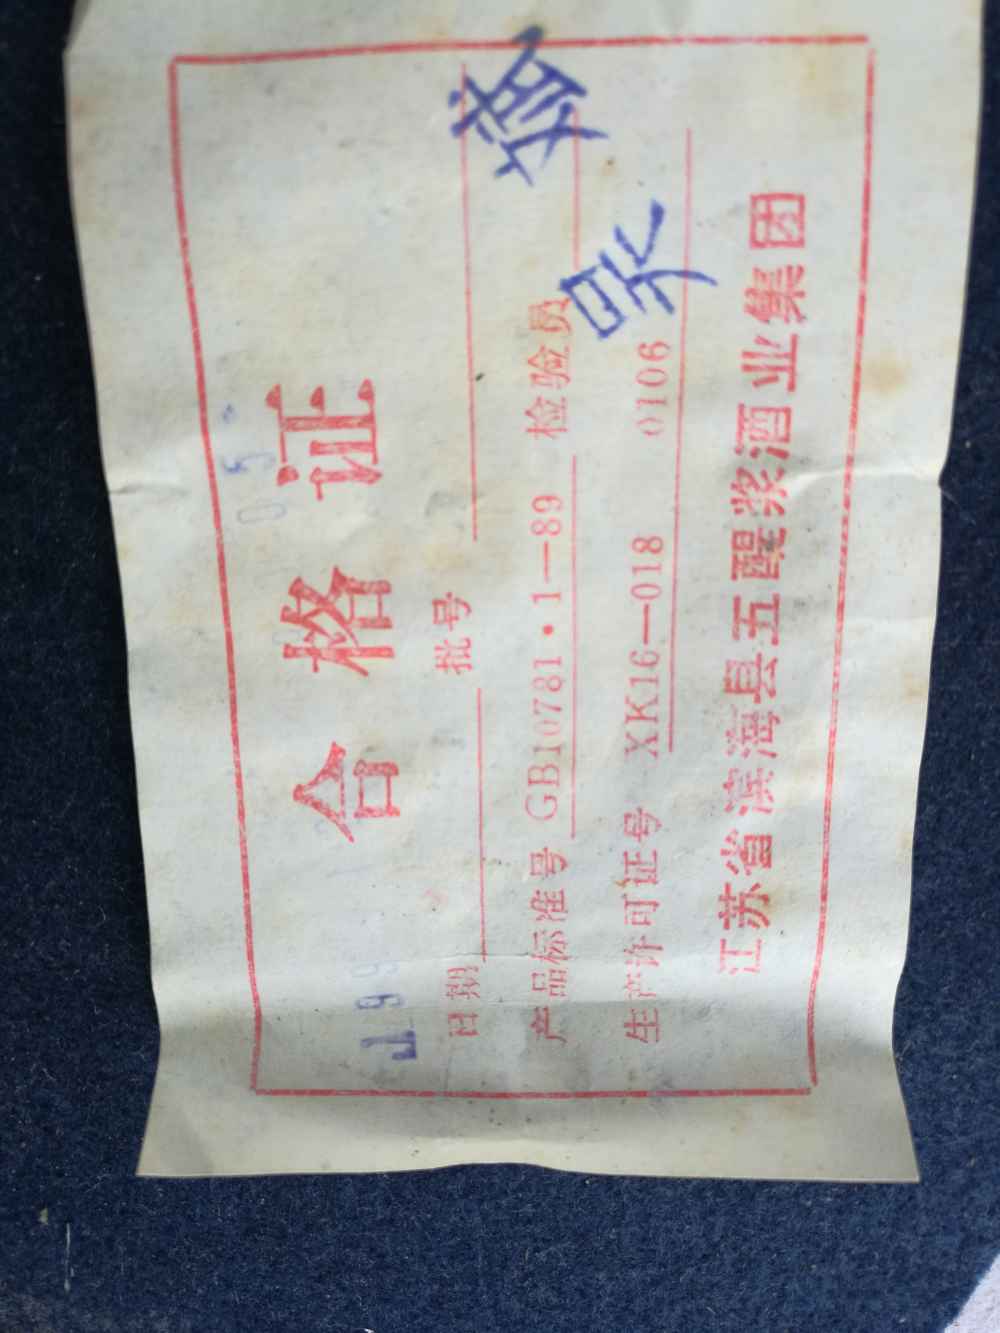 合格证
日期 批号
产品标准号 GB10781·1—89 检验员 吴
生产许可证号 XK16—018 0106
江苏省滨海县五醒浆酒业集团